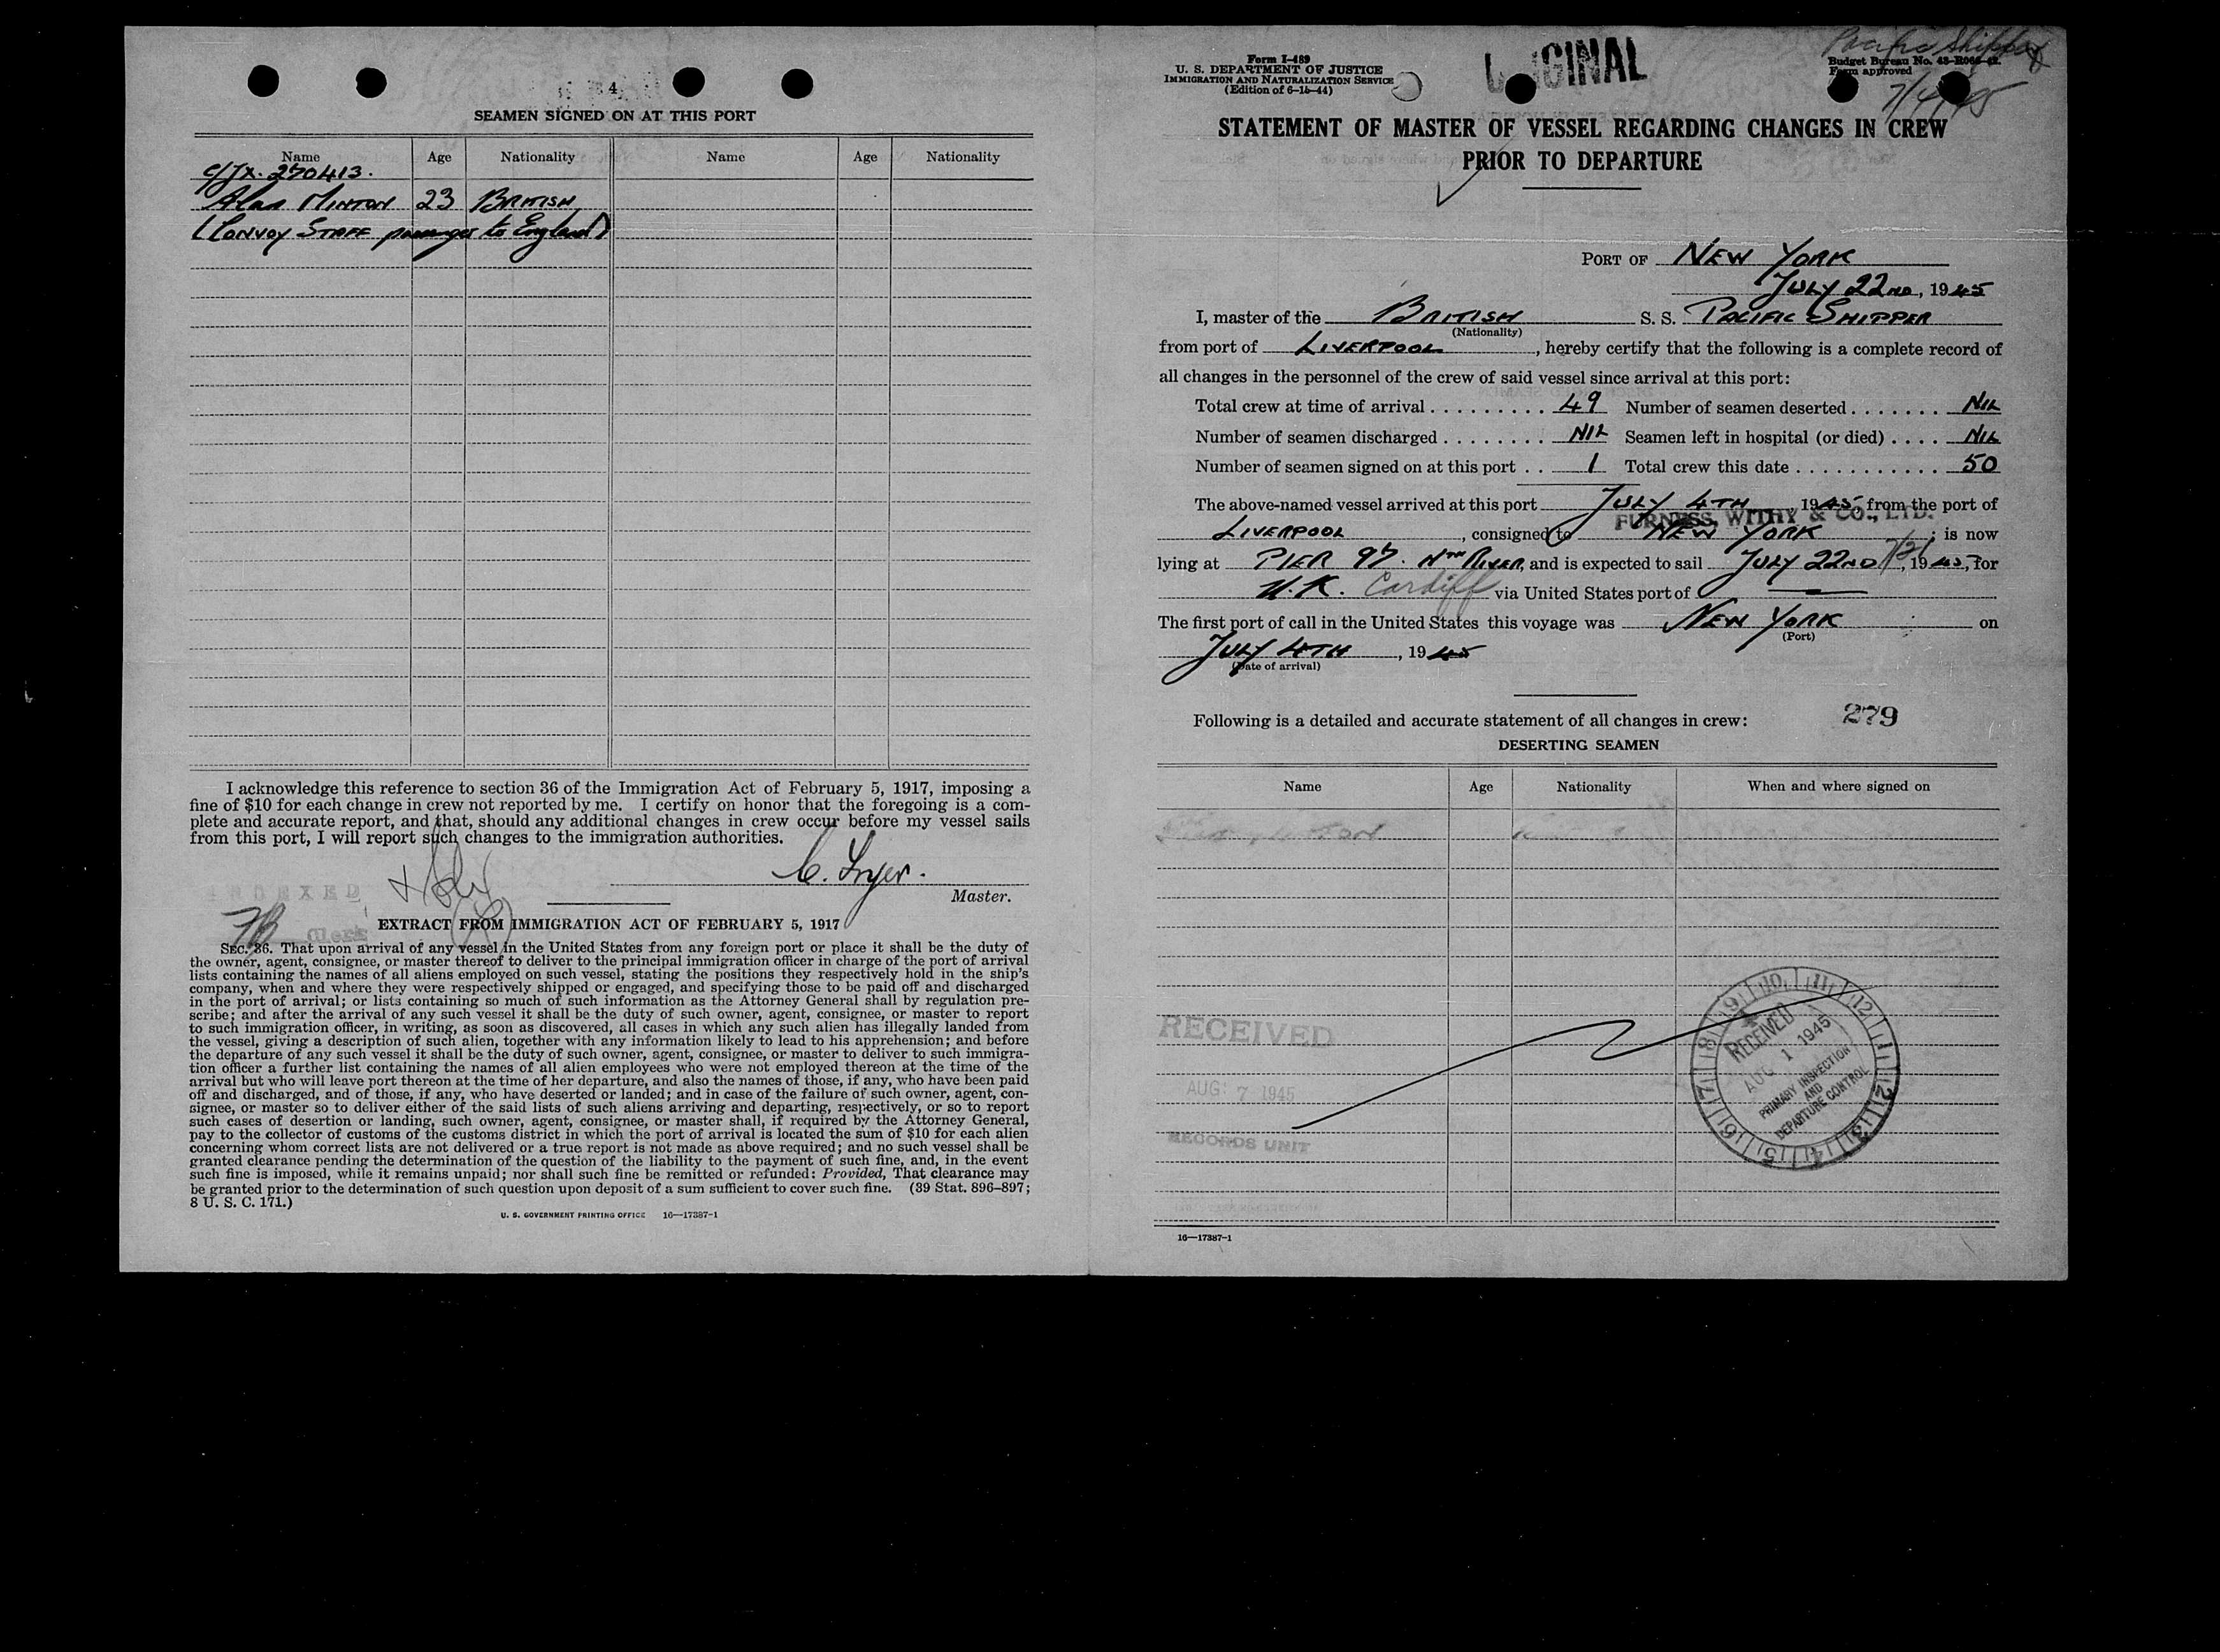 4
SEAMEN SIGNED ON AT THIS PORT
Name Age Nationality Name Age Nationality
C/JX. 270413.
Alan MINTON 23 BRITISH
(CONVOY STAFF passenger to England)
I acknowledge this reference to section 36 of the Immigration Act of February 5, 1917, imposing a
fine of $10 for each change in crew not reported by me. I certify on honor that the foregoing is a com-
plete and accurate report, and that, should any additional changes in crew occur before my vessel sails
from this port, I will report such changes to the immigration authorities.
Master.
INDEXED
Clerk
EXTRACT FROM IMMIGRATION ACT OF FEBRUARY 5, 1917
SEC. 36. That upon arrival of any vessel in the United States from any foreign port or place it shall be the duty of
the owner, agent, consignee, or master thereof to deliver to the principal immigration officer in charge of the port of arrival
lists containing the names of all aliens employed on such vessel, stating the positions they respectively hold in the ship's
company, when and where they were respectively shipped or engaged, and specifying those to be paid off and discharged
in the port of arrival; or lists containing so much of such information as the Attorney General shall by regulation pre-
scribe; and after the arrival of any such vessel it shall be the duty of such owner, agent, consignee, or master to report
to such immigration officer, in writing, as soon as discovered, all cases in which any such alien has illegally landed from
the vessel, giving a description of such alien, together with any information likely to lead to his apprehension; and before
the departure of any such vessel it shall be the duty of such owner, agent, consignee, or master to deliver to such immigra-
tion officer a further list containing the names of all alien employees who were not employed thereon at the time of the
arrival but who will leave port thereon at the time of her departure, and also the names of those, if any, who have been paid
off and discharged, and of those, if any, who have deserted or landed; and in case of the failure of such owner, agent, con-
signee, or master so to deliver either of the said lists of such aliens arriving and departing, respectively, or so to report
such cases of desertion or landing, such owner, agent, consignee, or master shall, if required by the Attorney General,
pay to the collector of customs of the customs district in which the port of arrival is located the sum of $10 for each alien
concerning whom correct lists are not delivered or a true report is not made as above required; and no such vessel shall be
granted clearance pending the determination of the question of the liability to the payment of such fine, and, in the event
such fine is imposed, while it remains unpaid; nor shall such fine be remitted or refunded: Provided, That clearance may
be granted prior to the determination of such question upon deposit of a sum sufficient to cover such fine. (39 Stat. 896–897;
8 U. S. C. 171.)
U. S. GOVERNMENT PRINTING OFFICE 16—17387-1
Form I-489
U. S. DEPARTMENT OF JUSTICE
IMMIGRATION AND NATURALIZATION SERVICE
(Edition of 6-15-44)
ORIGINAL
Pacific Shipper
Budget Bureau No. 43-R066-42.
Form approved
7/4/45
STATEMENT OF MASTER OF VESSEL REGARDING CHANGES IN CREW
PRIOR TO DEPARTURE
PORT OF NEW YORK
JULY 22ND, 1945
I, master of the BRITISH S. S. PACIFIC SHIPPER
(Nationality)
from port of LIVERPOOL, hereby certify that the following is a complete record of
all changes in the personnel of the crew of said vessel since arrival at this port:
Total crew at time of arrival . . . . . . . . . 49 Number of seamen deserted . . . . . . . NIL
Number of seamen discharged . . . . . . . . NIL Seamen left in hospital (or died) . . . . NIL
Number of seamen signed on at this port . . 1 Total crew this date . . . . . . . . . . . 50
The above-named vessel arrived at this port JULY 4TH, 1945, from the port of
FURNESS, WITHY & CO., LTD.
LIVERPOOL, consigned to NEW YORK; is now
lying at PIER 97. NTH RIVER, and is expected to sail JULY 22ND 7/21, 1945, for
U.K. Cardiff via United States port of —
The first port of call in the United States this voyage was NEW YORK on
(Port)
JULY 4TH, 1945
(Date of arrival)
Following is a detailed and accurate statement of all changes in crew: 279
DESERTING SEAMEN
Name Age Nationality When and where signed on
RECEIVED
AUG 7 1945
RECORDS UNIT
9 10 11 12 1 2 3 4 5 6 7 8
RECEIVED
AUG 1 1945
PRIMARY INSPECTION
AND
DEPARTURE CONTROL
16—17387-1